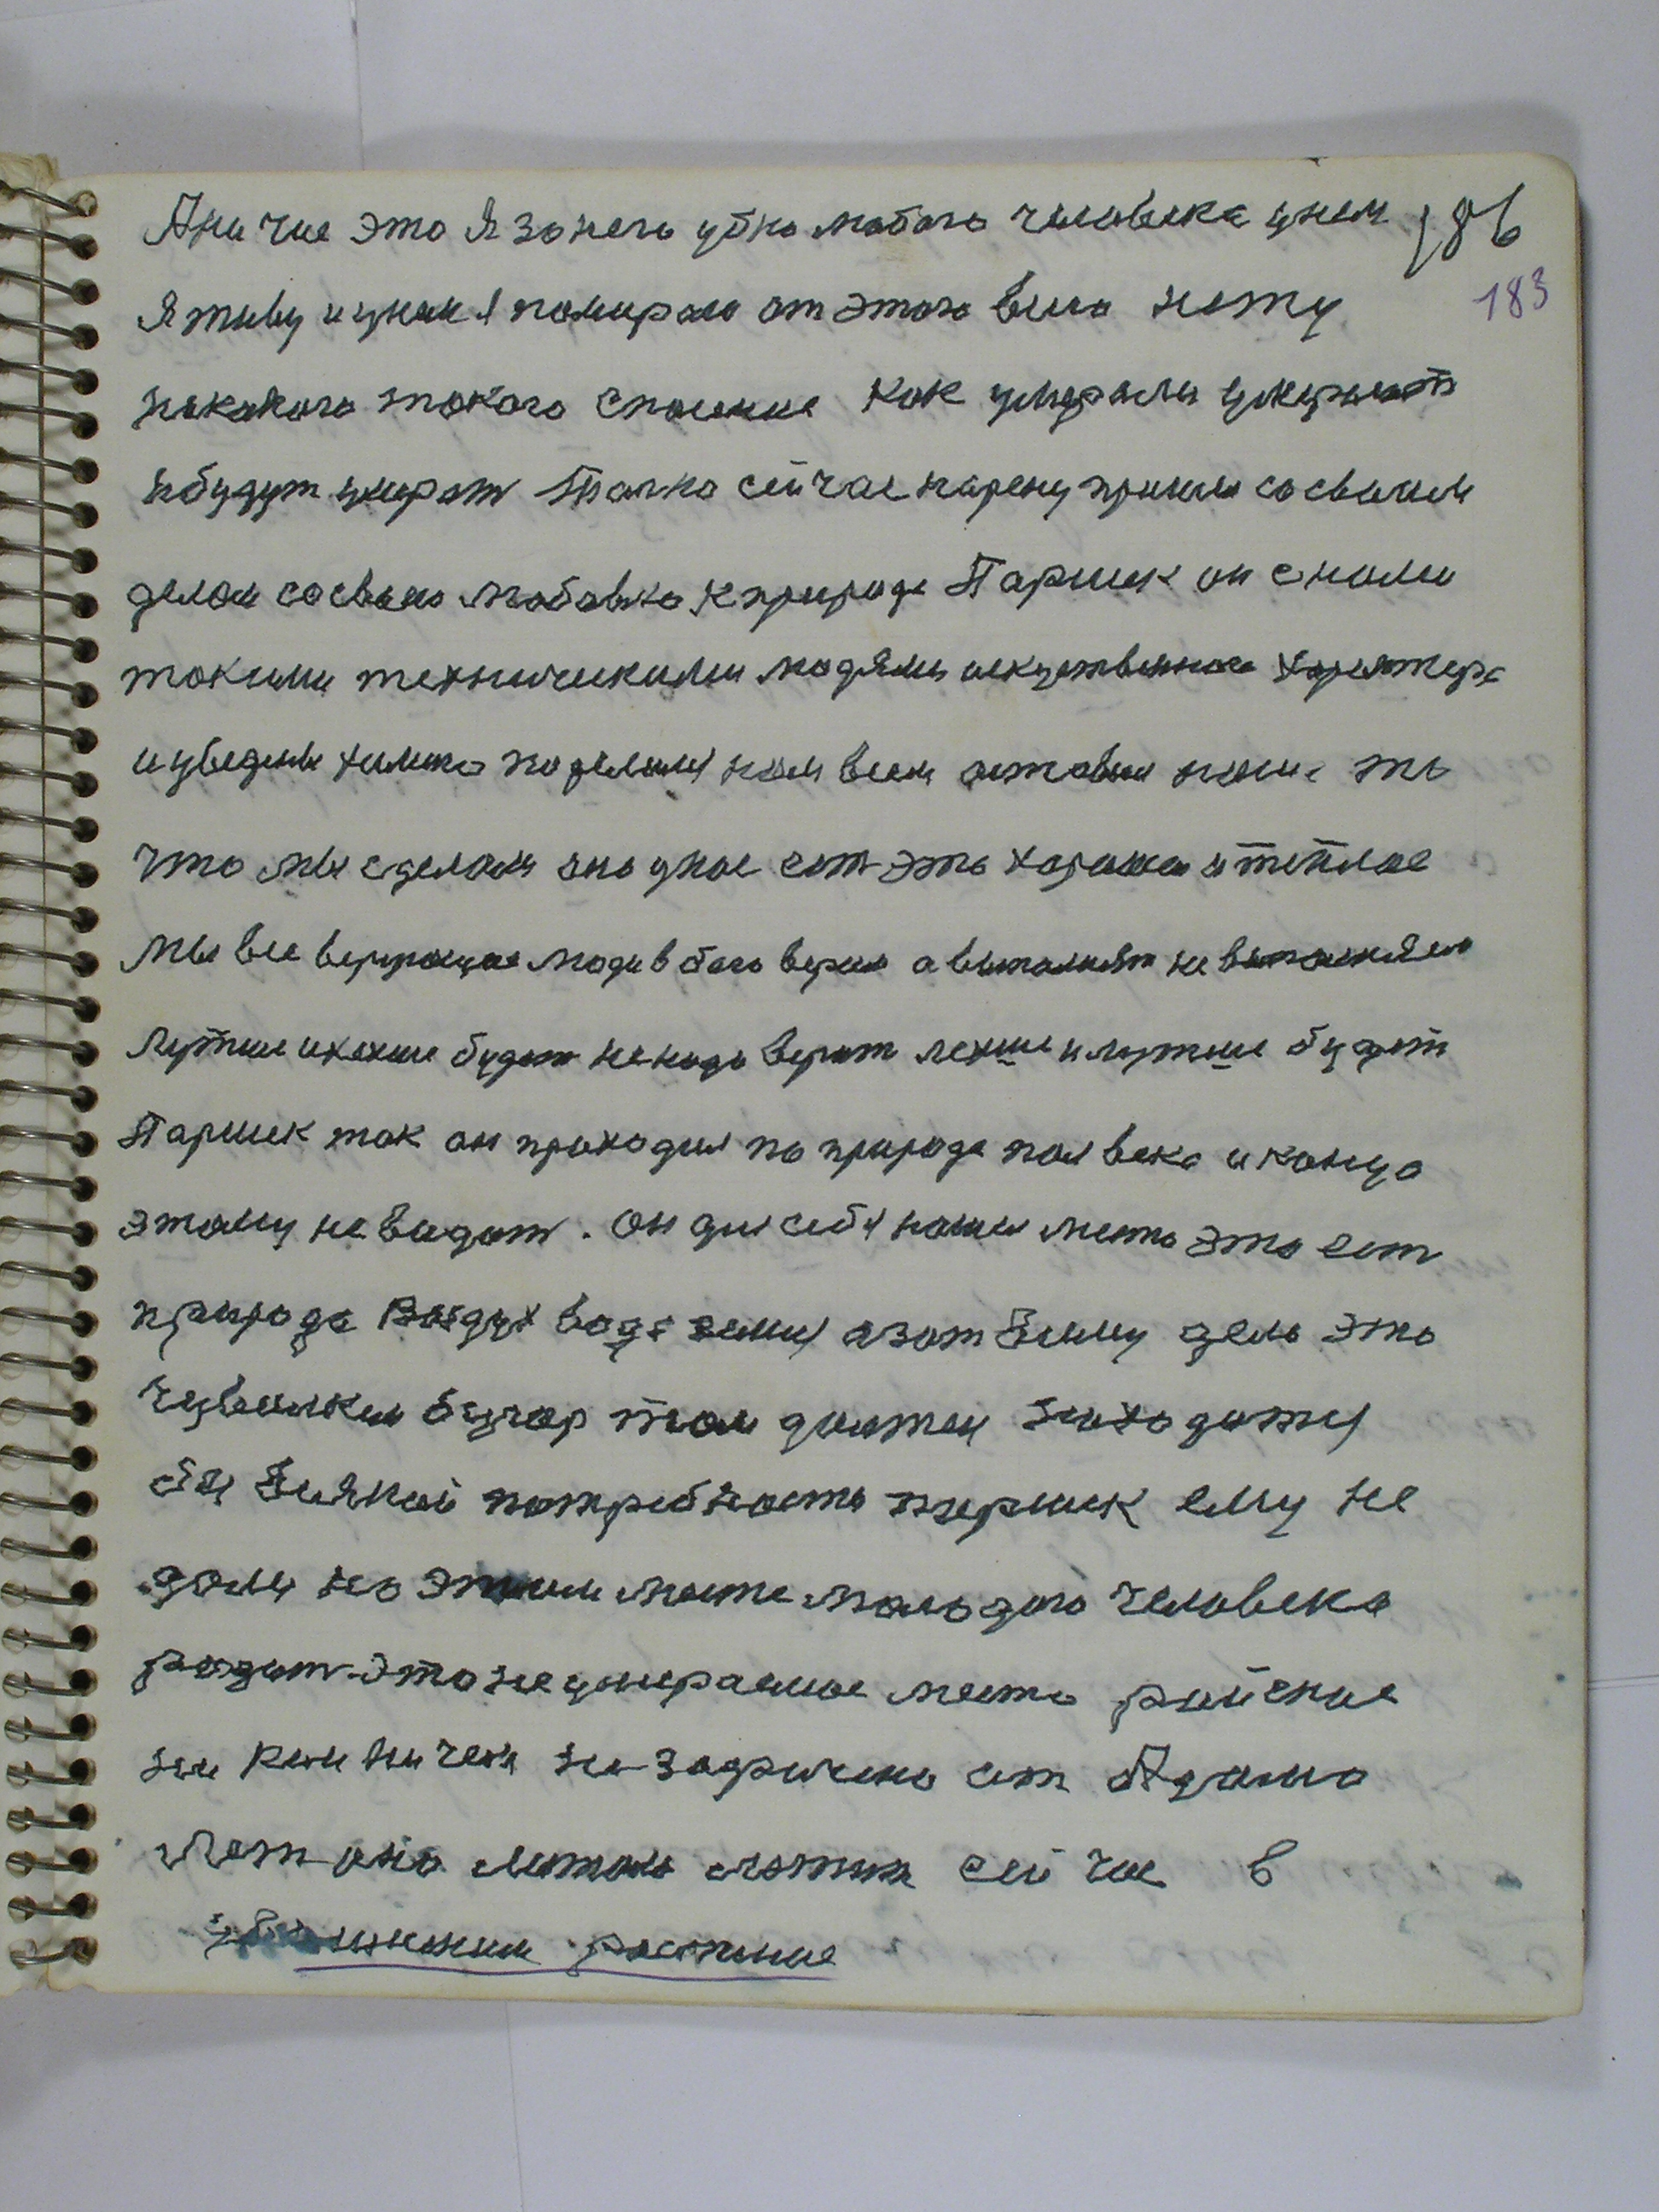 Ани час это я за него убю любого человека у нем 186
Я живу и у нем я помираю от этого всего нету 183
никакого такого спасение как умерали умерают
и будут умират Толко сейчас на арену пришол со своим
делом со своею любовю к природе Паршек он с ноли
такими техническими людями искуственного характера
и уведение химию поделился нам всем оставил ноше то
что мы сделали оно у нас ест это хорошое и теплое
Мы все верующие люди в бога верим а выполнят не выполняем
Лутше и хуже будет не надо верит легше и лутше будет
Паршек так он проходил по природе пол века и конца
этому не видат. Он для себя нашел место это ест
природа воздух вода земля а вот всему дело это
Чувилкин бугор там должен находится
без всякой потребности паршек ему не
дали на этим месте молодого человека
родит это не умираемое место райское
ни ким ни чем не задричено от Адама
лет оно летало летит сейчас в
растение